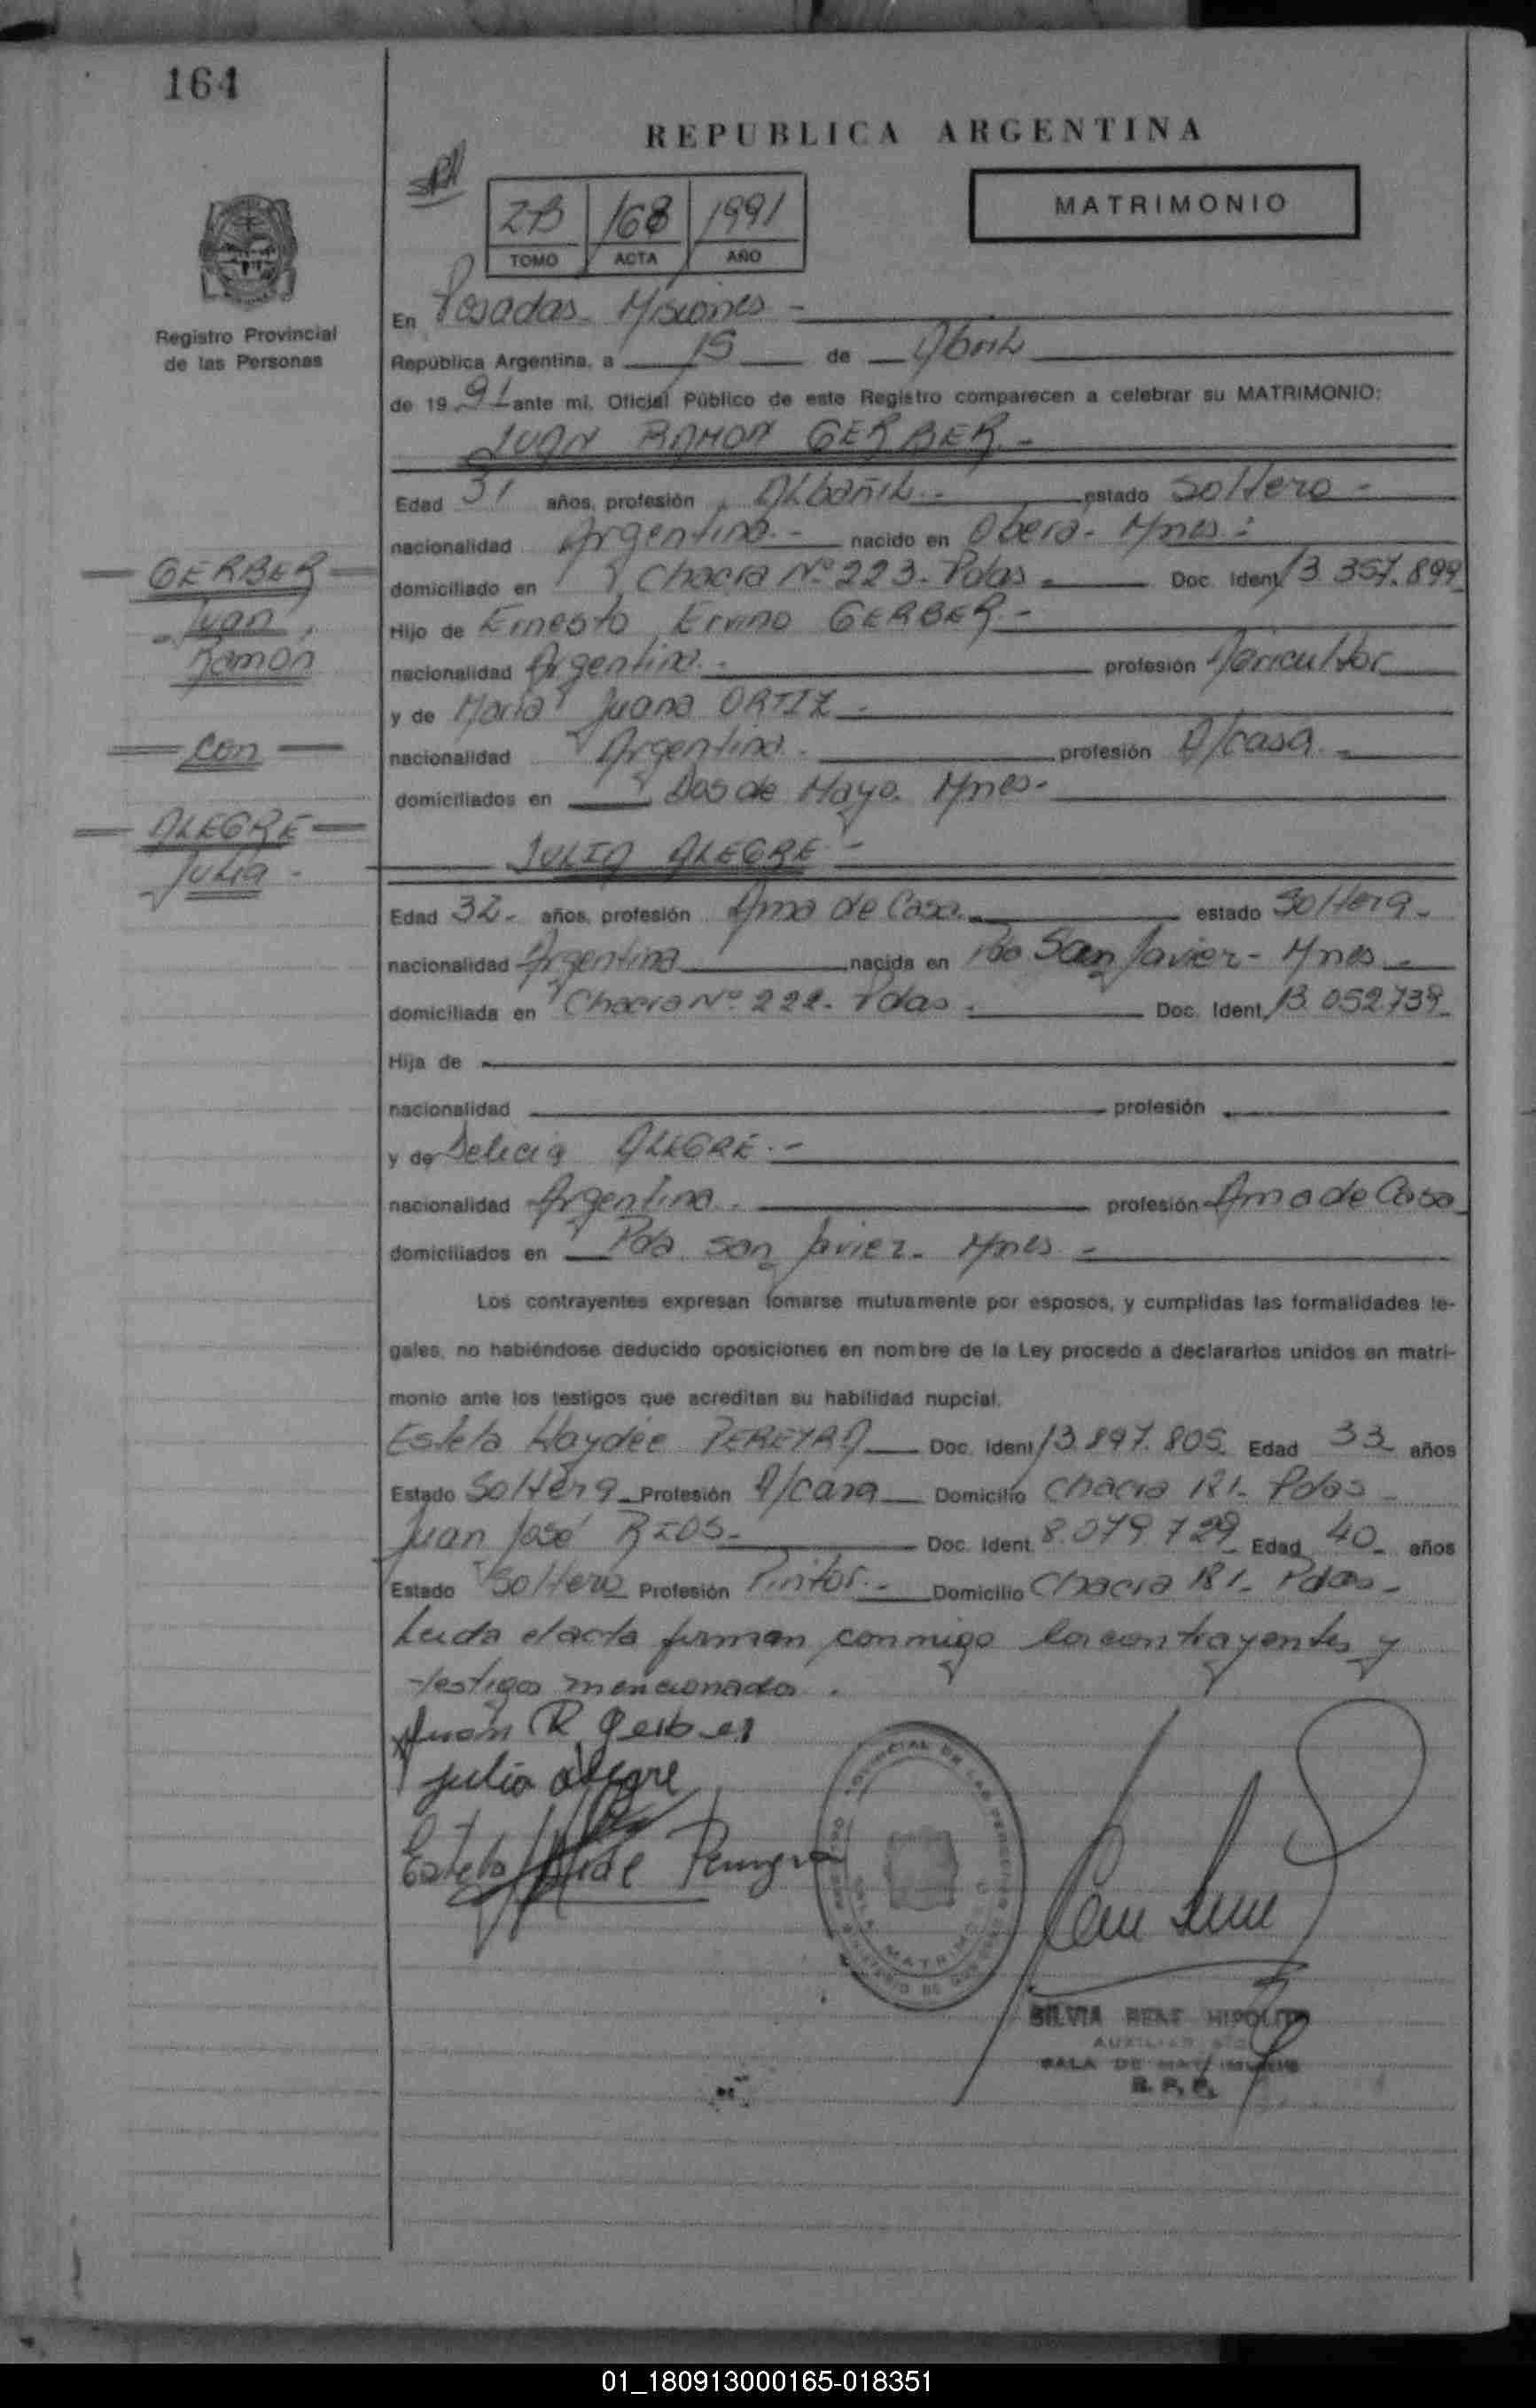 164
REPUBLICA ARGENTINA
MATRIMONIO
168 1991
TOMO ACTA AÑO
Registro Provincial
de las Personas
En Posadas - Misiones -
República Argentina, a 15 de Abril
de 19 91 ante mí, Oficial Público de este Registro comparecen a celebrar su MATRIMONIO:
JUAN RAMON GERBER.-
Edad 31 años, profesión Albañil.- estado Soltero -
nacionalidad Argentina.- nacido en Oberá - Mnes.-
domiciliado en Chacra Nº 223 - Pdas - Doc. Ident. 13.357.899
Hijo de Ernesto Ervino GERBER.-
nacionalidad Argentina.- profesión Agricultor
y de Maria Juana ORTIZ -
nacionalidad Argentina.- profesión A/casa.-
domiciliados en Dos de Mayo. Mnes.-
GERBER
Juan
Ramon
Con
ALEGRE
Julia -
JULIA ALEGRE -
Edad 32 - años, profesión Ama de Casa.- estado Soltera -
nacionalidad Argentina nacida en San Javier - Mnes -
domiciliada en Chacra Nº 222 - Pdas - Doc. Ident. 13.052.739
Hija de
nacionalidad profesión
y de Delicia ALEGRE.-
nacionalidad Argentina. profesión Ama de Casa
domiciliados en San Javier - Mnes -
Los contrayentes expresan tomarse mutuamente por esposos, y cumplidas las formalidades le-
gales, no habiéndose deducido oposiciones en nombre de la Ley procedo a declararlos unidos en matri-
monio ante los testigos que acreditan su habilidad nupcial.
Estela Haydée PEREYRA Doc. Ident. 13.897.805 Edad 33 años
Estado Soltera Profesión A/casa Domicilio Chacra 181 - Pdas -
Juan José RIOS - Doc. Ident. 8.079.729 Edad 40 - años
Estado Soltero Profesión Pintor.- Domicilio Chacra 181 - Pdas -
Leida el acta firman conmigo los contrayentes y
testigos mencionados.
Juan R. Gerber
Julia Alegre
Estela
PROVINCIAL DE LAS PERSONAS
SALA MATRIMONIO
MINISTERIO DE GOBIERNO
SILVIA RENE HIPOLITO
AUXILIAR
SALA DE MATRIMONIO
R. P. P.
01_180913000165-018351